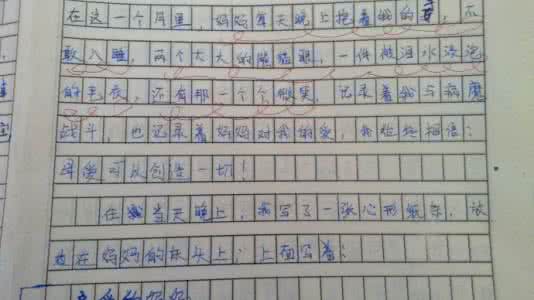 在这一个月里，妈妈每天晚上抱着我的，不
敢入睡，两个大大的熊猫眼，一件被泪水浸泡
的毛衣，还有那一个个微笑，记录着我与病魔
战斗，也记录着妈妈对我的爱，我始终相信：
母爱可以创造一切！
在当天晚上，我写了一张心形纸条，放
在妈妈的床头上，上面写着：
亲爱的妈妈